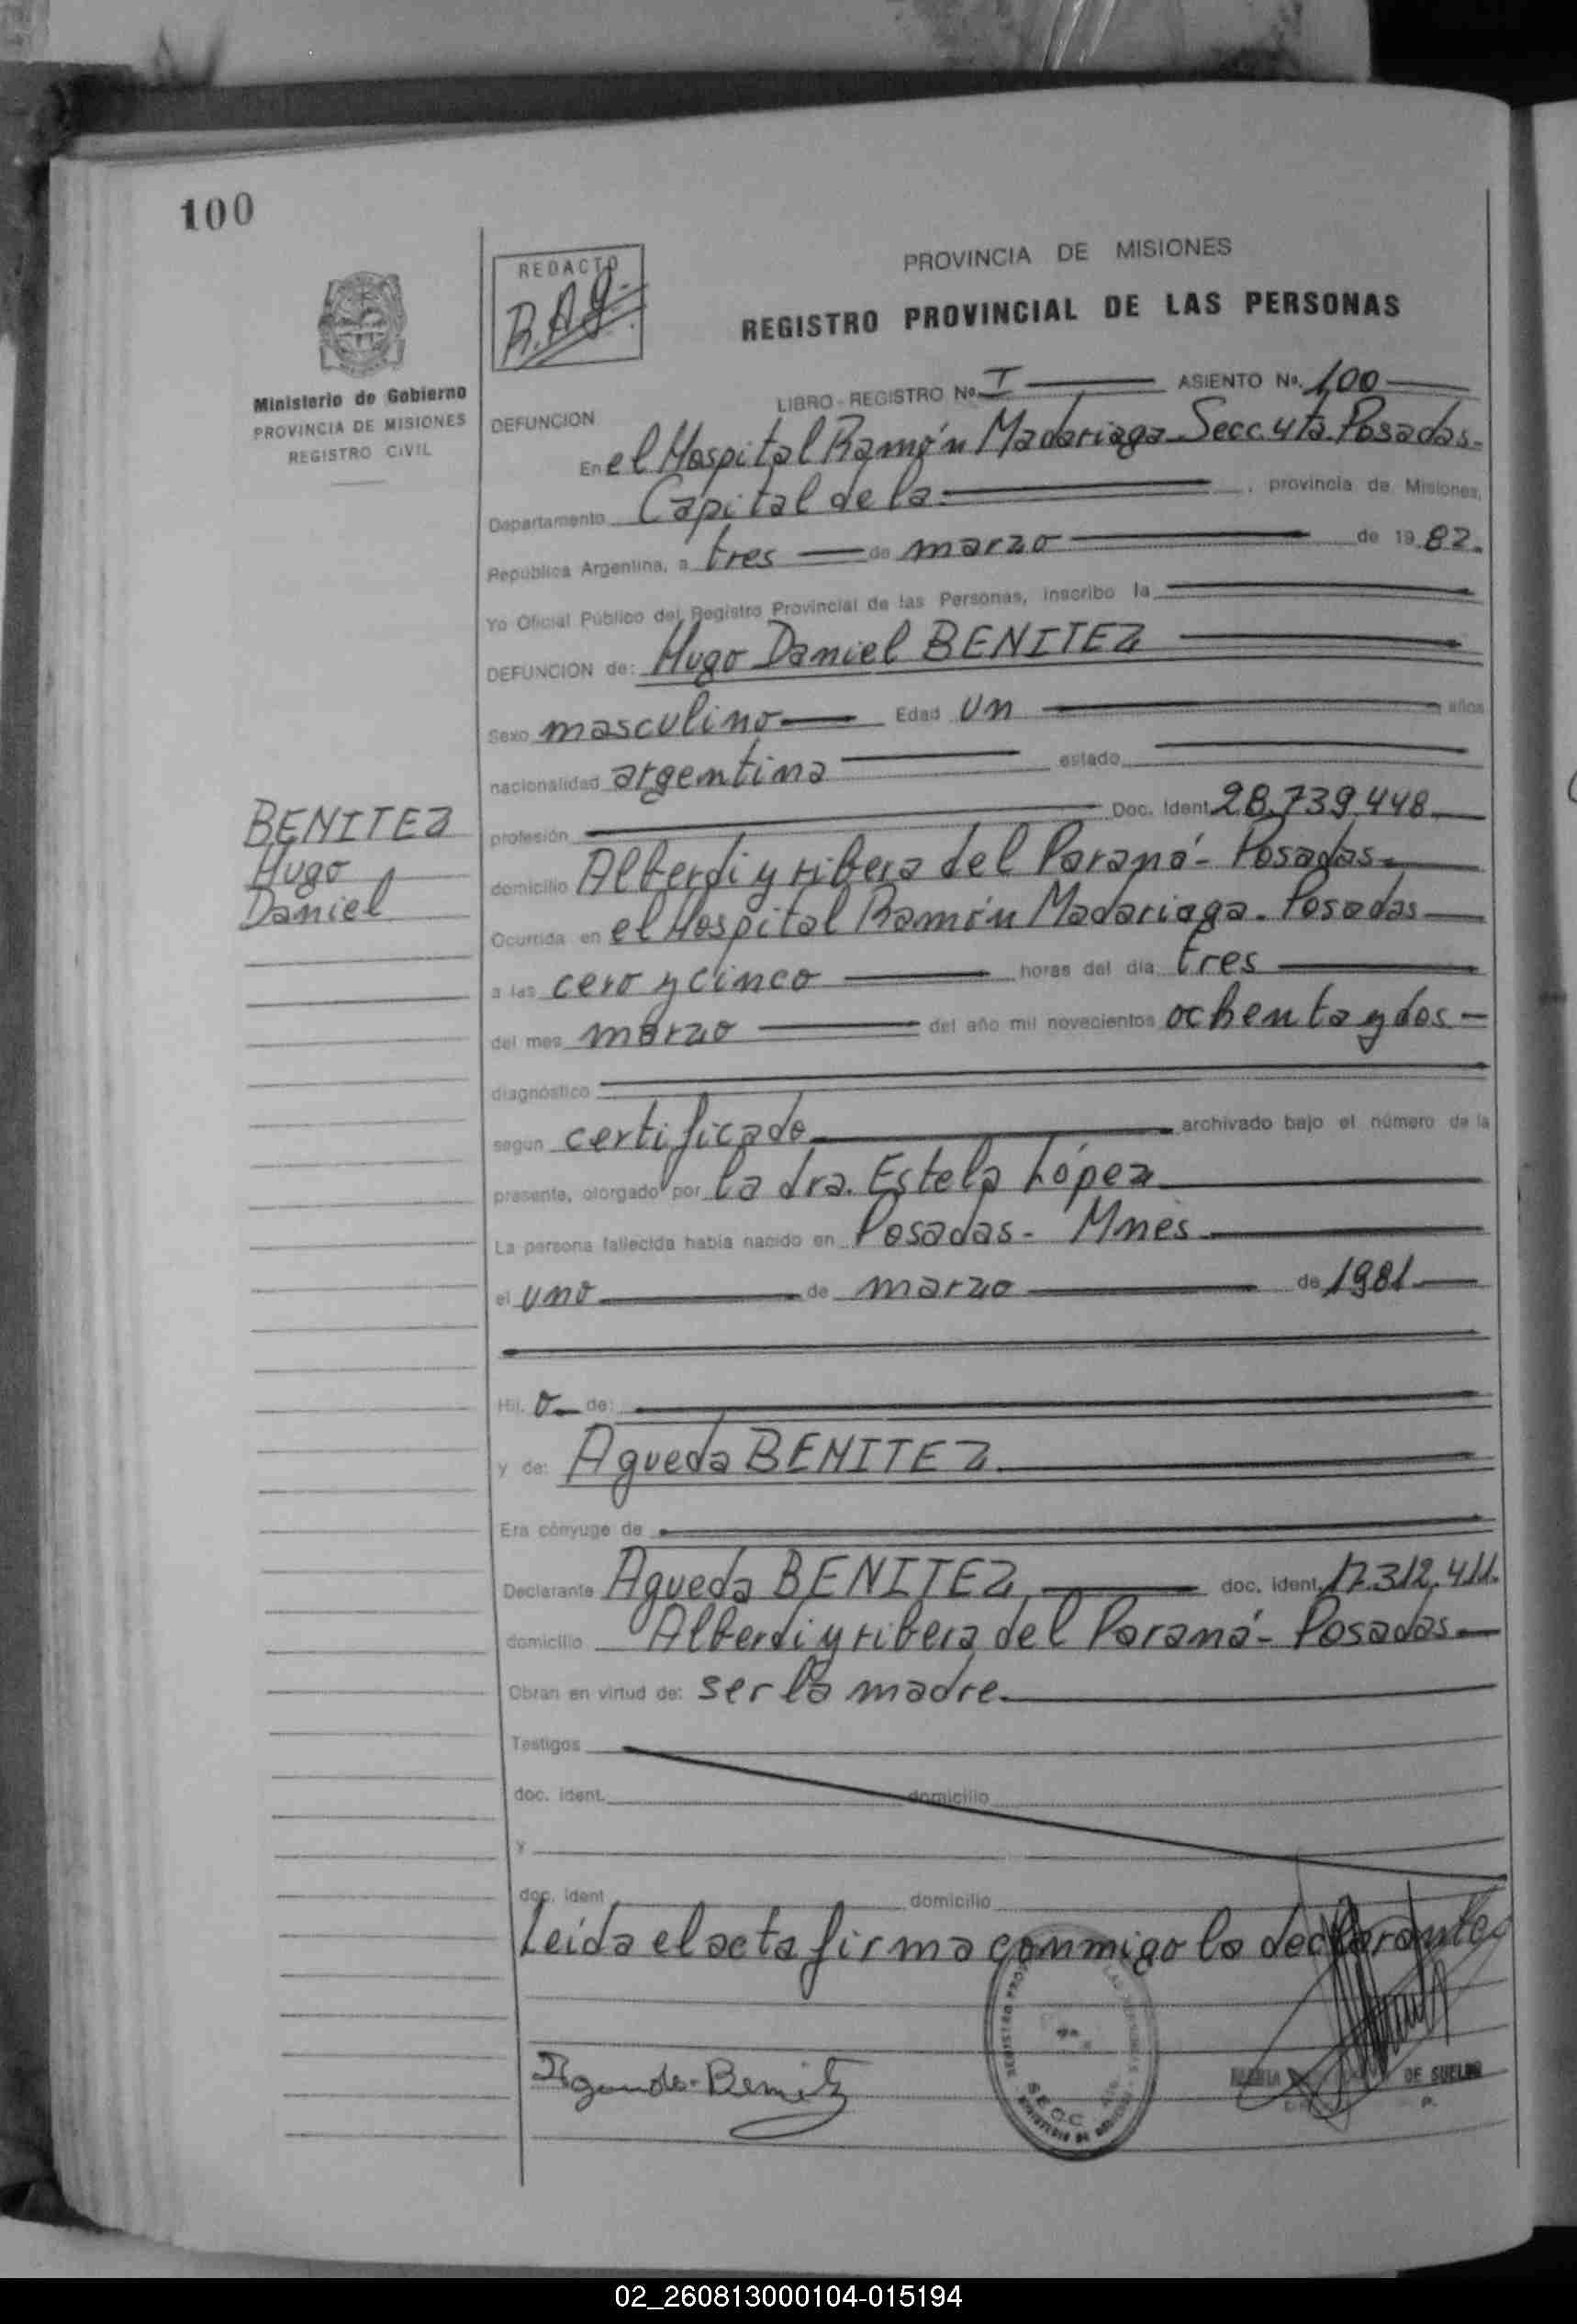 100
REDACTO
R.A.G.
PROVINCIA DE MISIONES
REGISTRO PROVINCIAL DE LAS PERSONAS
Ministerio de Gobierno
PROVINCIA DE MISIONES
REGISTRO CIVIL
LIBRO - REGISTRO No. I ASIENTO No. 100
DEFUNCION
En el Hospital Ramón Madariaga Secc. 4ta. Posadas.
Departamento Capital de la , provincia de Misiones,
República Argentina, a tres de marzo de 1982.
Yo Oficial Público del Registro Provincial de las Personas, inscribo la
DEFUNCION de: Hugo Daniel BENITEZ
Sexo masculino Edad un años
nacionalidad argentina estado
BENITEZ
Hugo
Daniel
profesión Doc. Ident. 28.739.448.
domicilio Alberdi y ribera del Paraná - Posadas.
Ocurrida en el Hospital Ramón Madariaga. Posadas
a las cero y cinco horas del día tres
del mes marzo del año mil novecientos ochenta y dos
diagnóstico
según certificado archivado bajo el número de la
presente, otorgado por la dra. Estela López
La persona fallecida había nacido en Posadas - Mnes
el uno de marzo de 1981
Hij. o de:
y de: Agueda BENITEZ
Era cónyuge de
Declarante Agueda BENITEZ doc. ident. 17.312.411.
domicilio Alberdi y ribera del Paraná - Posadas
Obran en virtud de: ser la madre.
Testigos
doc. ident. domicilio
y
doc. ident domicilio
Leída el acta firma conmigo la declarante
Benitez
REGISTRO
SECC.
DE SUELDO
02_260813000104-015194